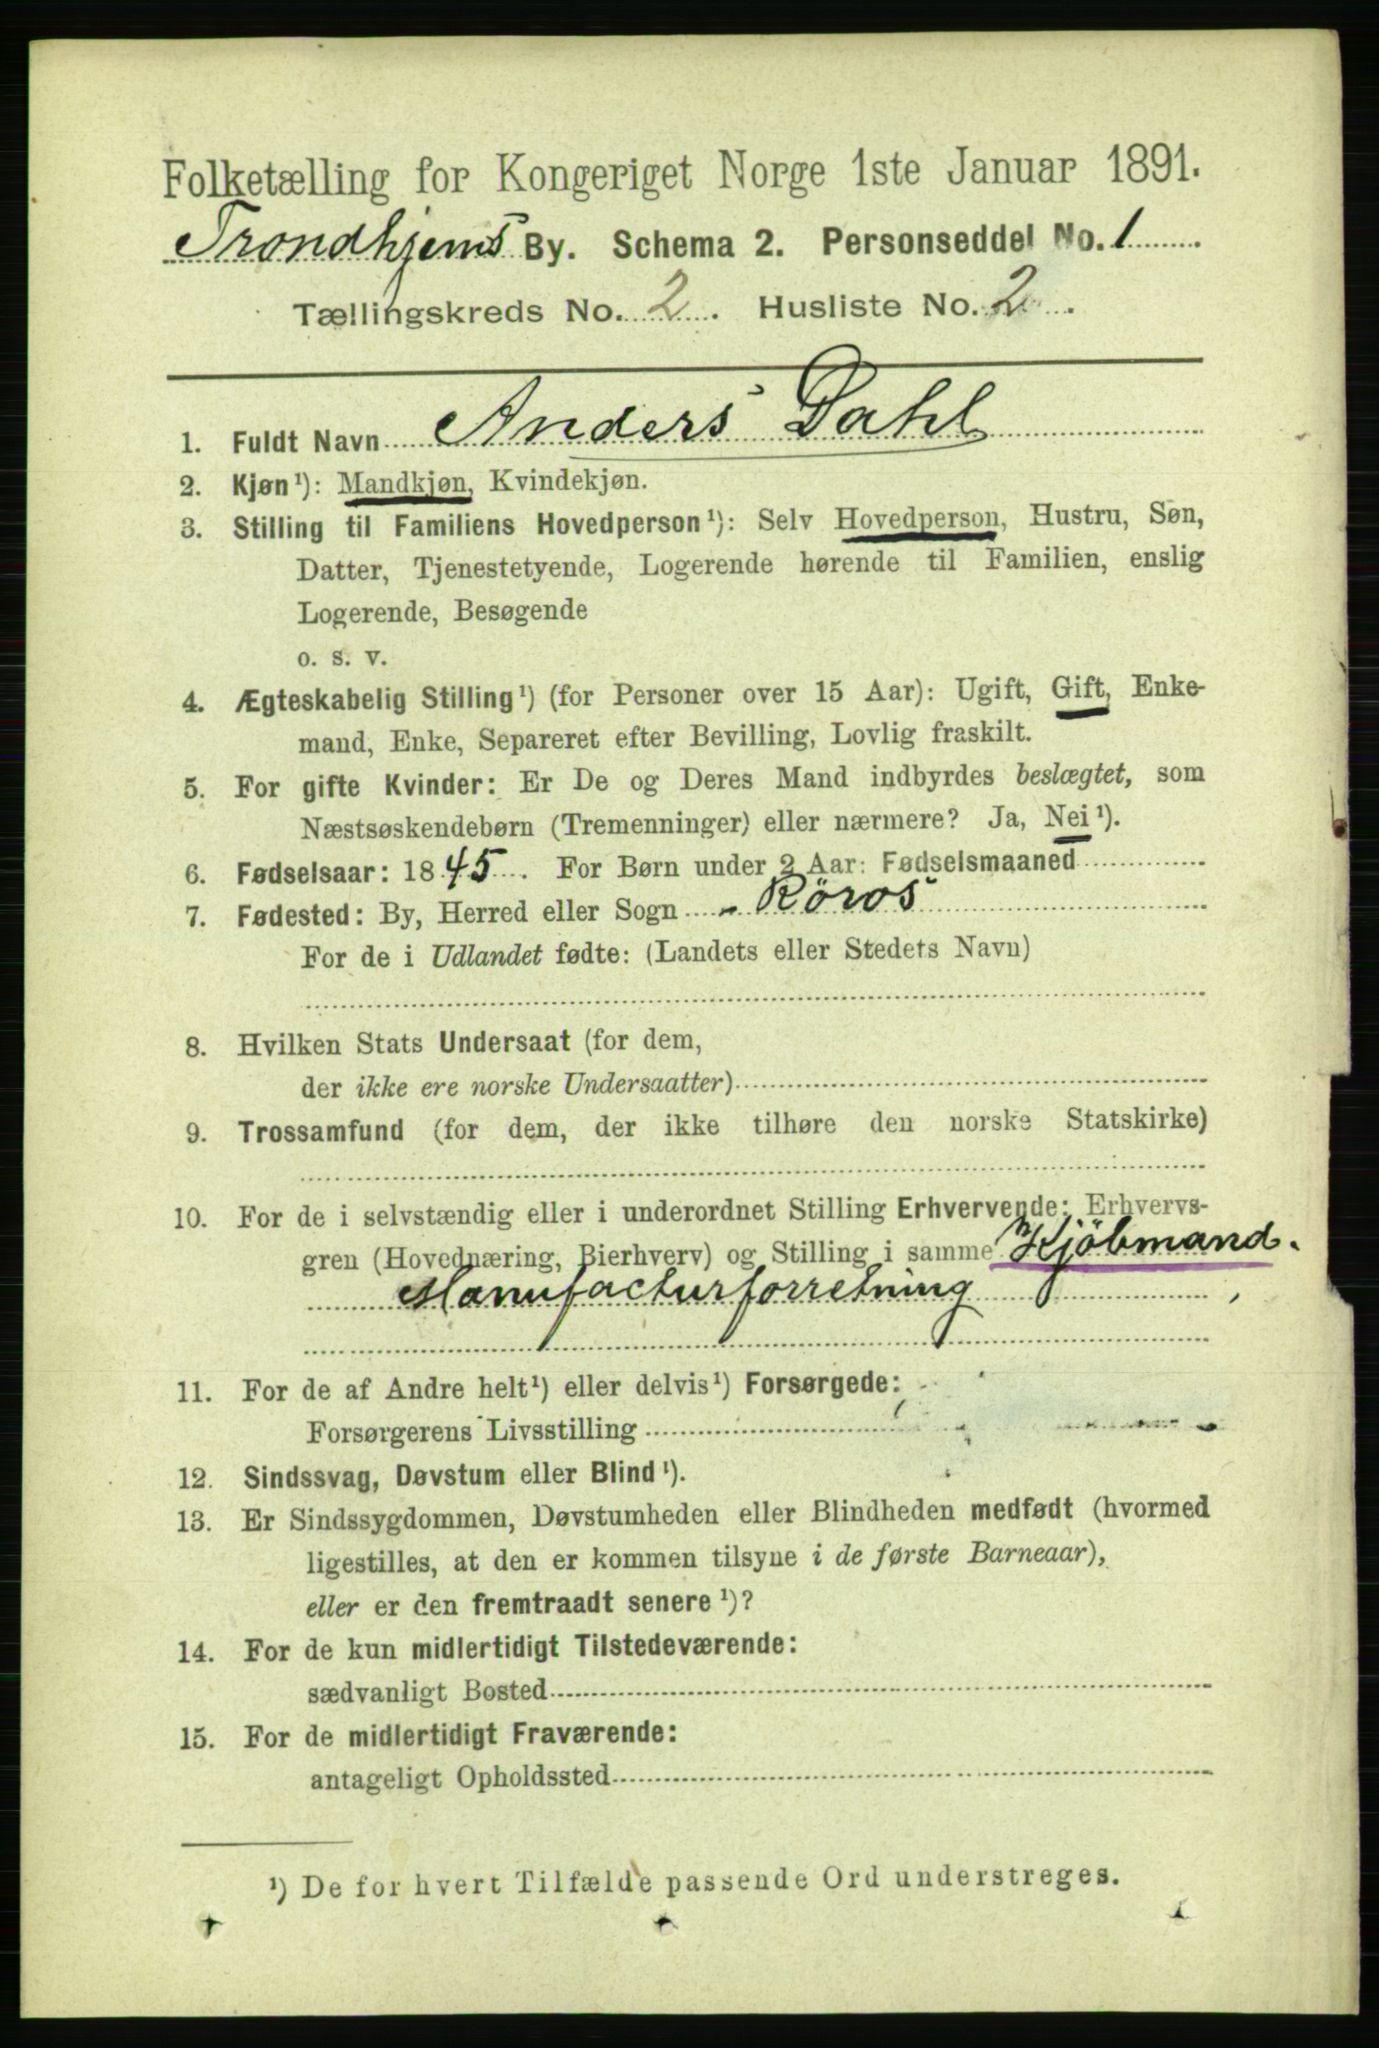 Folketælling for Kongeriget Norge 1ste Januar 1891.
Trondhjems By. Schema 2. Personseddel No. 1
Tællingskreds No. 2. Husliste No. 2.
1. Fuldt Navn Anders Dahl
2. Kjøn¹): Mandkjøn, Kvindekjøn.
3. Stilling til Familiens Hovedperson¹): Selv Hovedperson, Hustru, Søn,
Datter, Tjenestetyende, Logerende hørende til Familien, enslig
Logerende, Besøgende
o. s. v.
4. Ægteskabelig Stilling¹) (for Personer over 15 Aar): Ugift, Gift, Enke-
mand, Enke, Separeret efter Bevilling, Lovlig fraskilt.
5. For gifte Kvinder: Er De og Deres Mand indbyrdes beslægtet, som
Næstsøskendebørn (Tremenninger) eller nærmere? Ja, Nei¹).
6. Fødselsaar: 1845. For Børn under 2 Aar: Fødselsmaaned
7. Fødested: By, Herred eller Sogn - Röros
For de i Udlandet fødte: (Landets eller Stedets Navn)
8. Hvilken Stats Undersaat (for dem,
der ikke ere norske Undersaatter)
9. Trossamfund (for dem, der ikke tilhøre den norske Statskirke)
10. For de i selvstændig eller i underordnet Stilling Erhvervende: Erhvervs-
gren (Hovednæring, Bierhverv) og Stilling i samme Kjöbmand.
Manufacturforretning
11. For de af Andre helt¹) eller delvis¹) Forsørgede:
Forsørgerens Livsstilling
12. Sindssvag, Døvstum eller Blind¹).
13. Er Sindssygdommen, Døvstumheden eller Blindheden medfødt (hvormed
ligestilles, at den er kommen tilsyne i de første Barneaar),
eller er den fremtraadt senere¹)?
14. For de kun midlertidigt Tilstedeværende:
sædvanligt Bosted
15. For de midlertidigt Fraværende:
antageligt Opholdssted
¹) De for hvert Tilfælde passende Ord understreges.